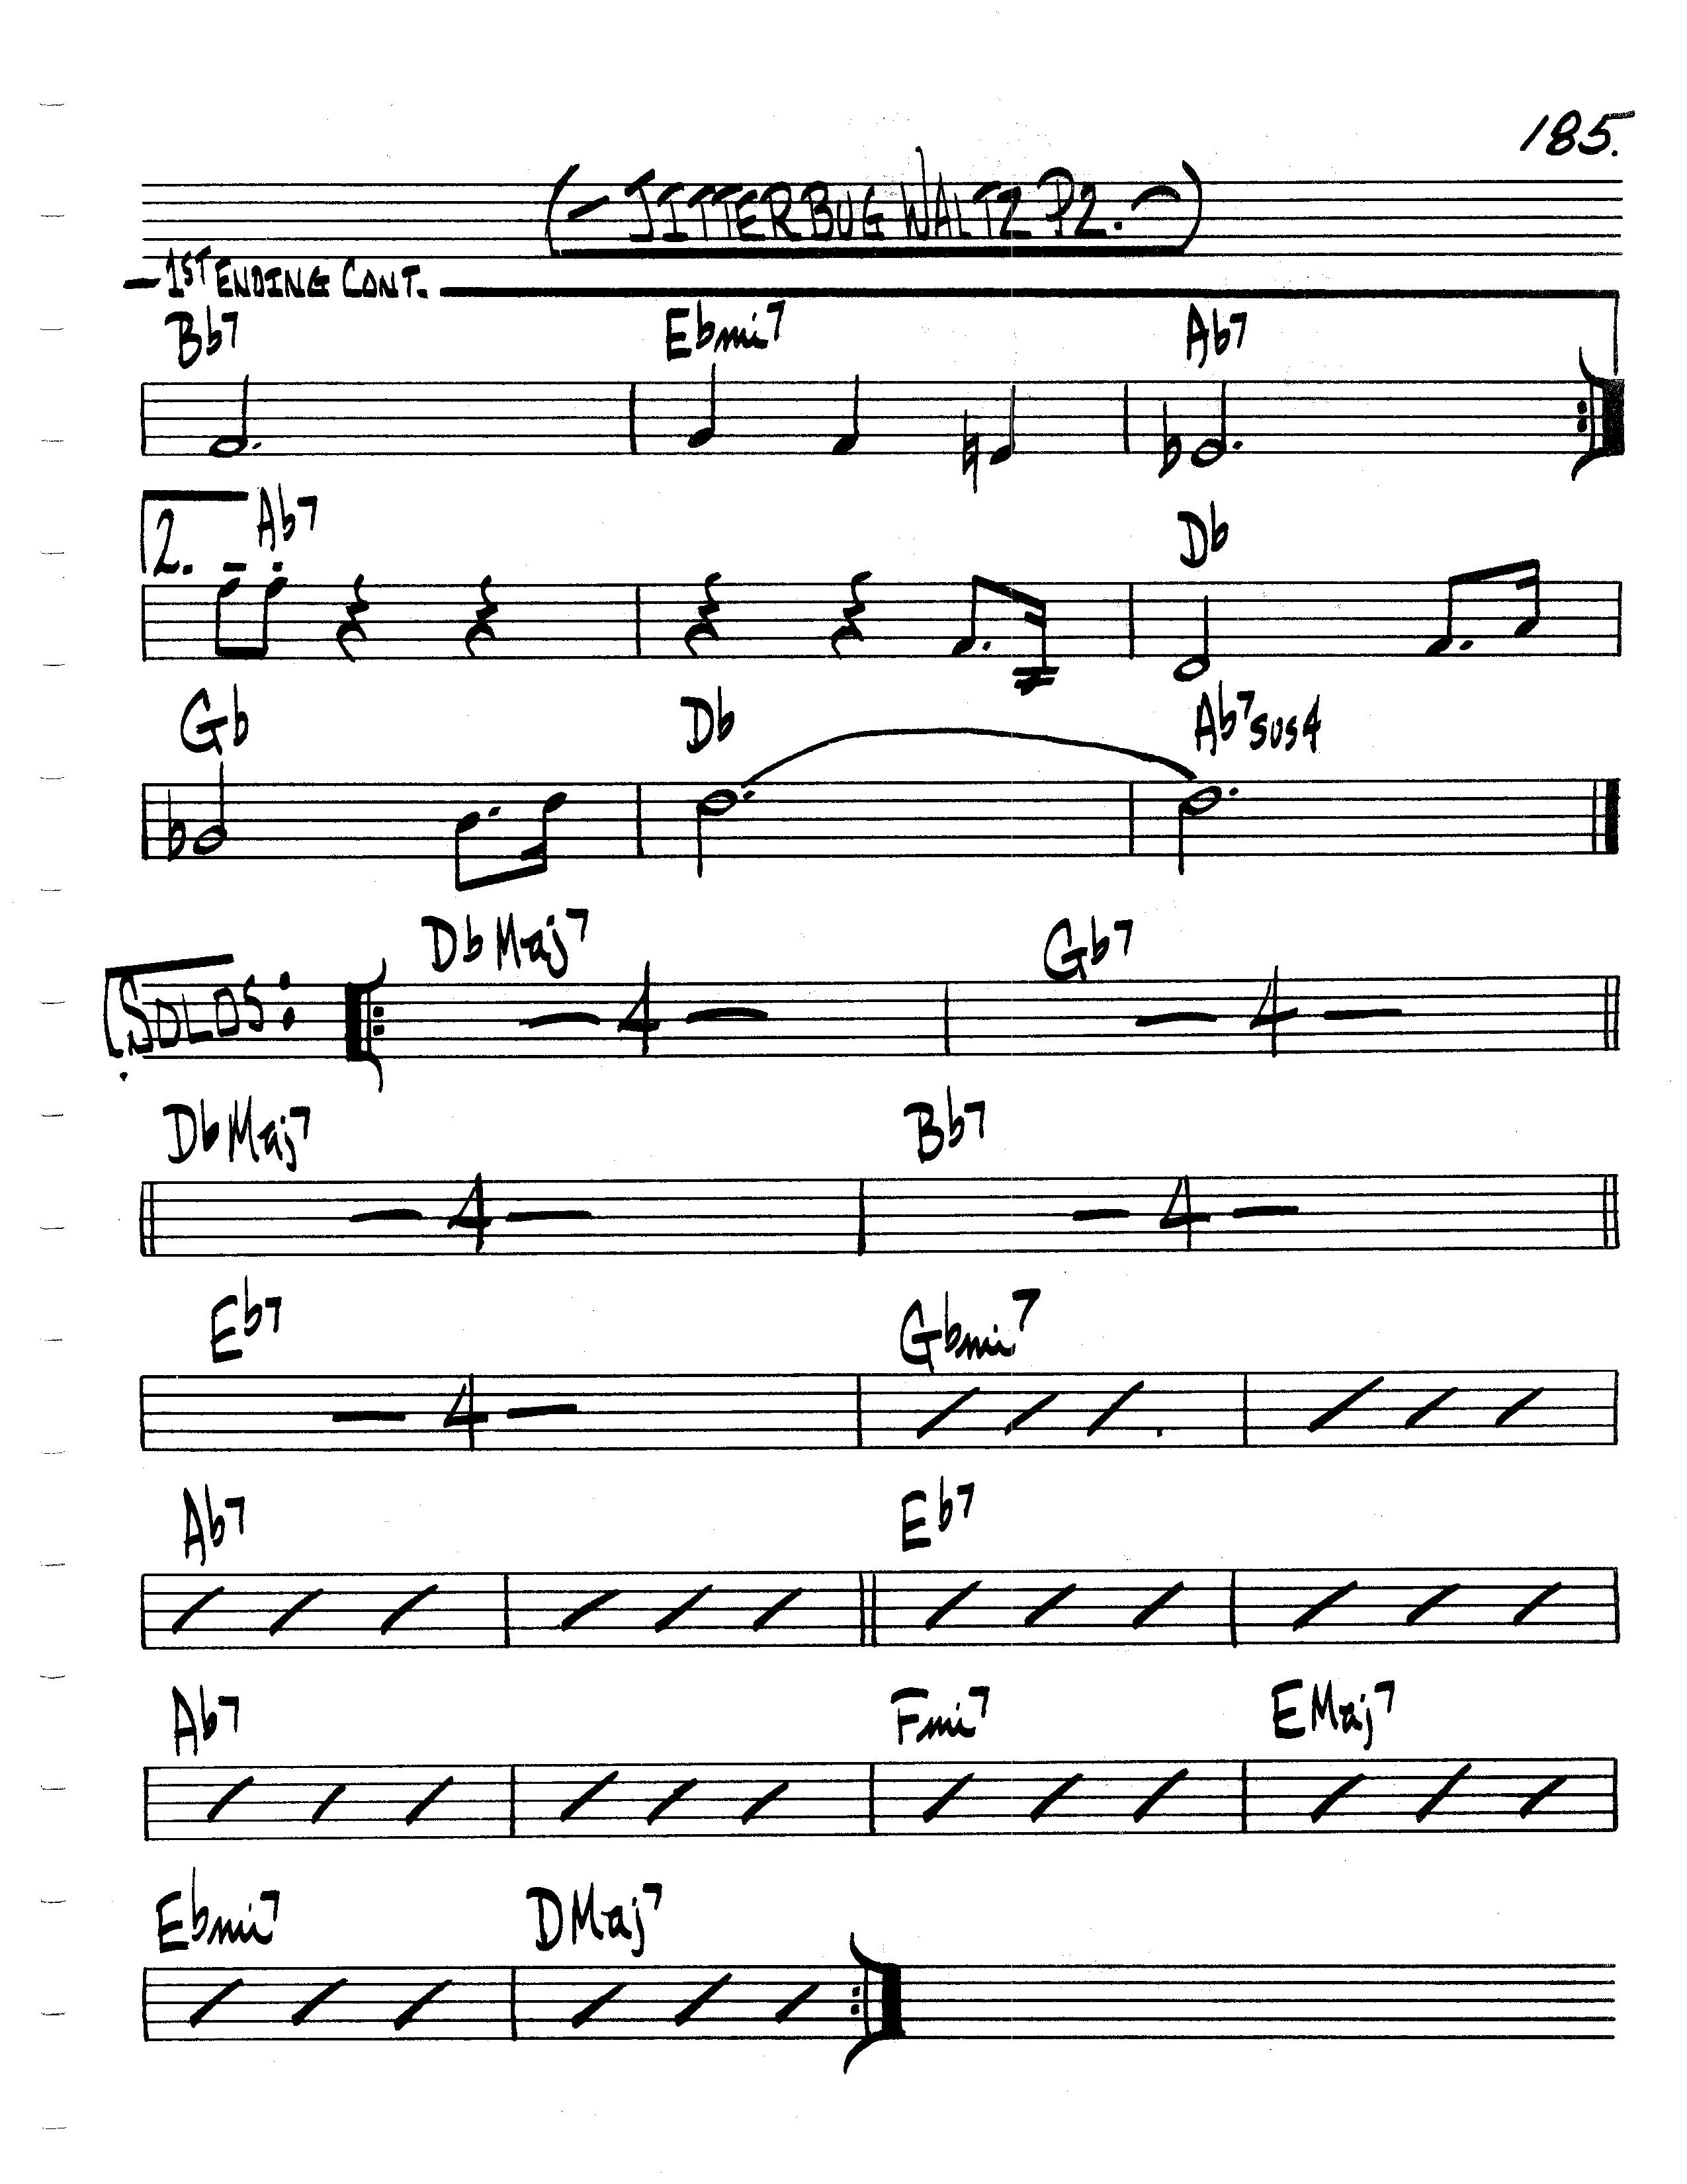 185.
(- JITTERBUG WALTZ P2. -)
- 1ST ENDING CONT.
Bb7 Ebmi7 Ab7
2. Ab7 Db
Gb Db Ab7sus4
SOLOS: DbMaj7 Gb7
- 4 - - 4 -
DbMaj7 Bb7
- 4 - - 4 -
Eb7 Gbmi7
- 4 -
Ab7 Eb7
Ab7 Fmi7 EMaj7
Ebmi7 DMaj7